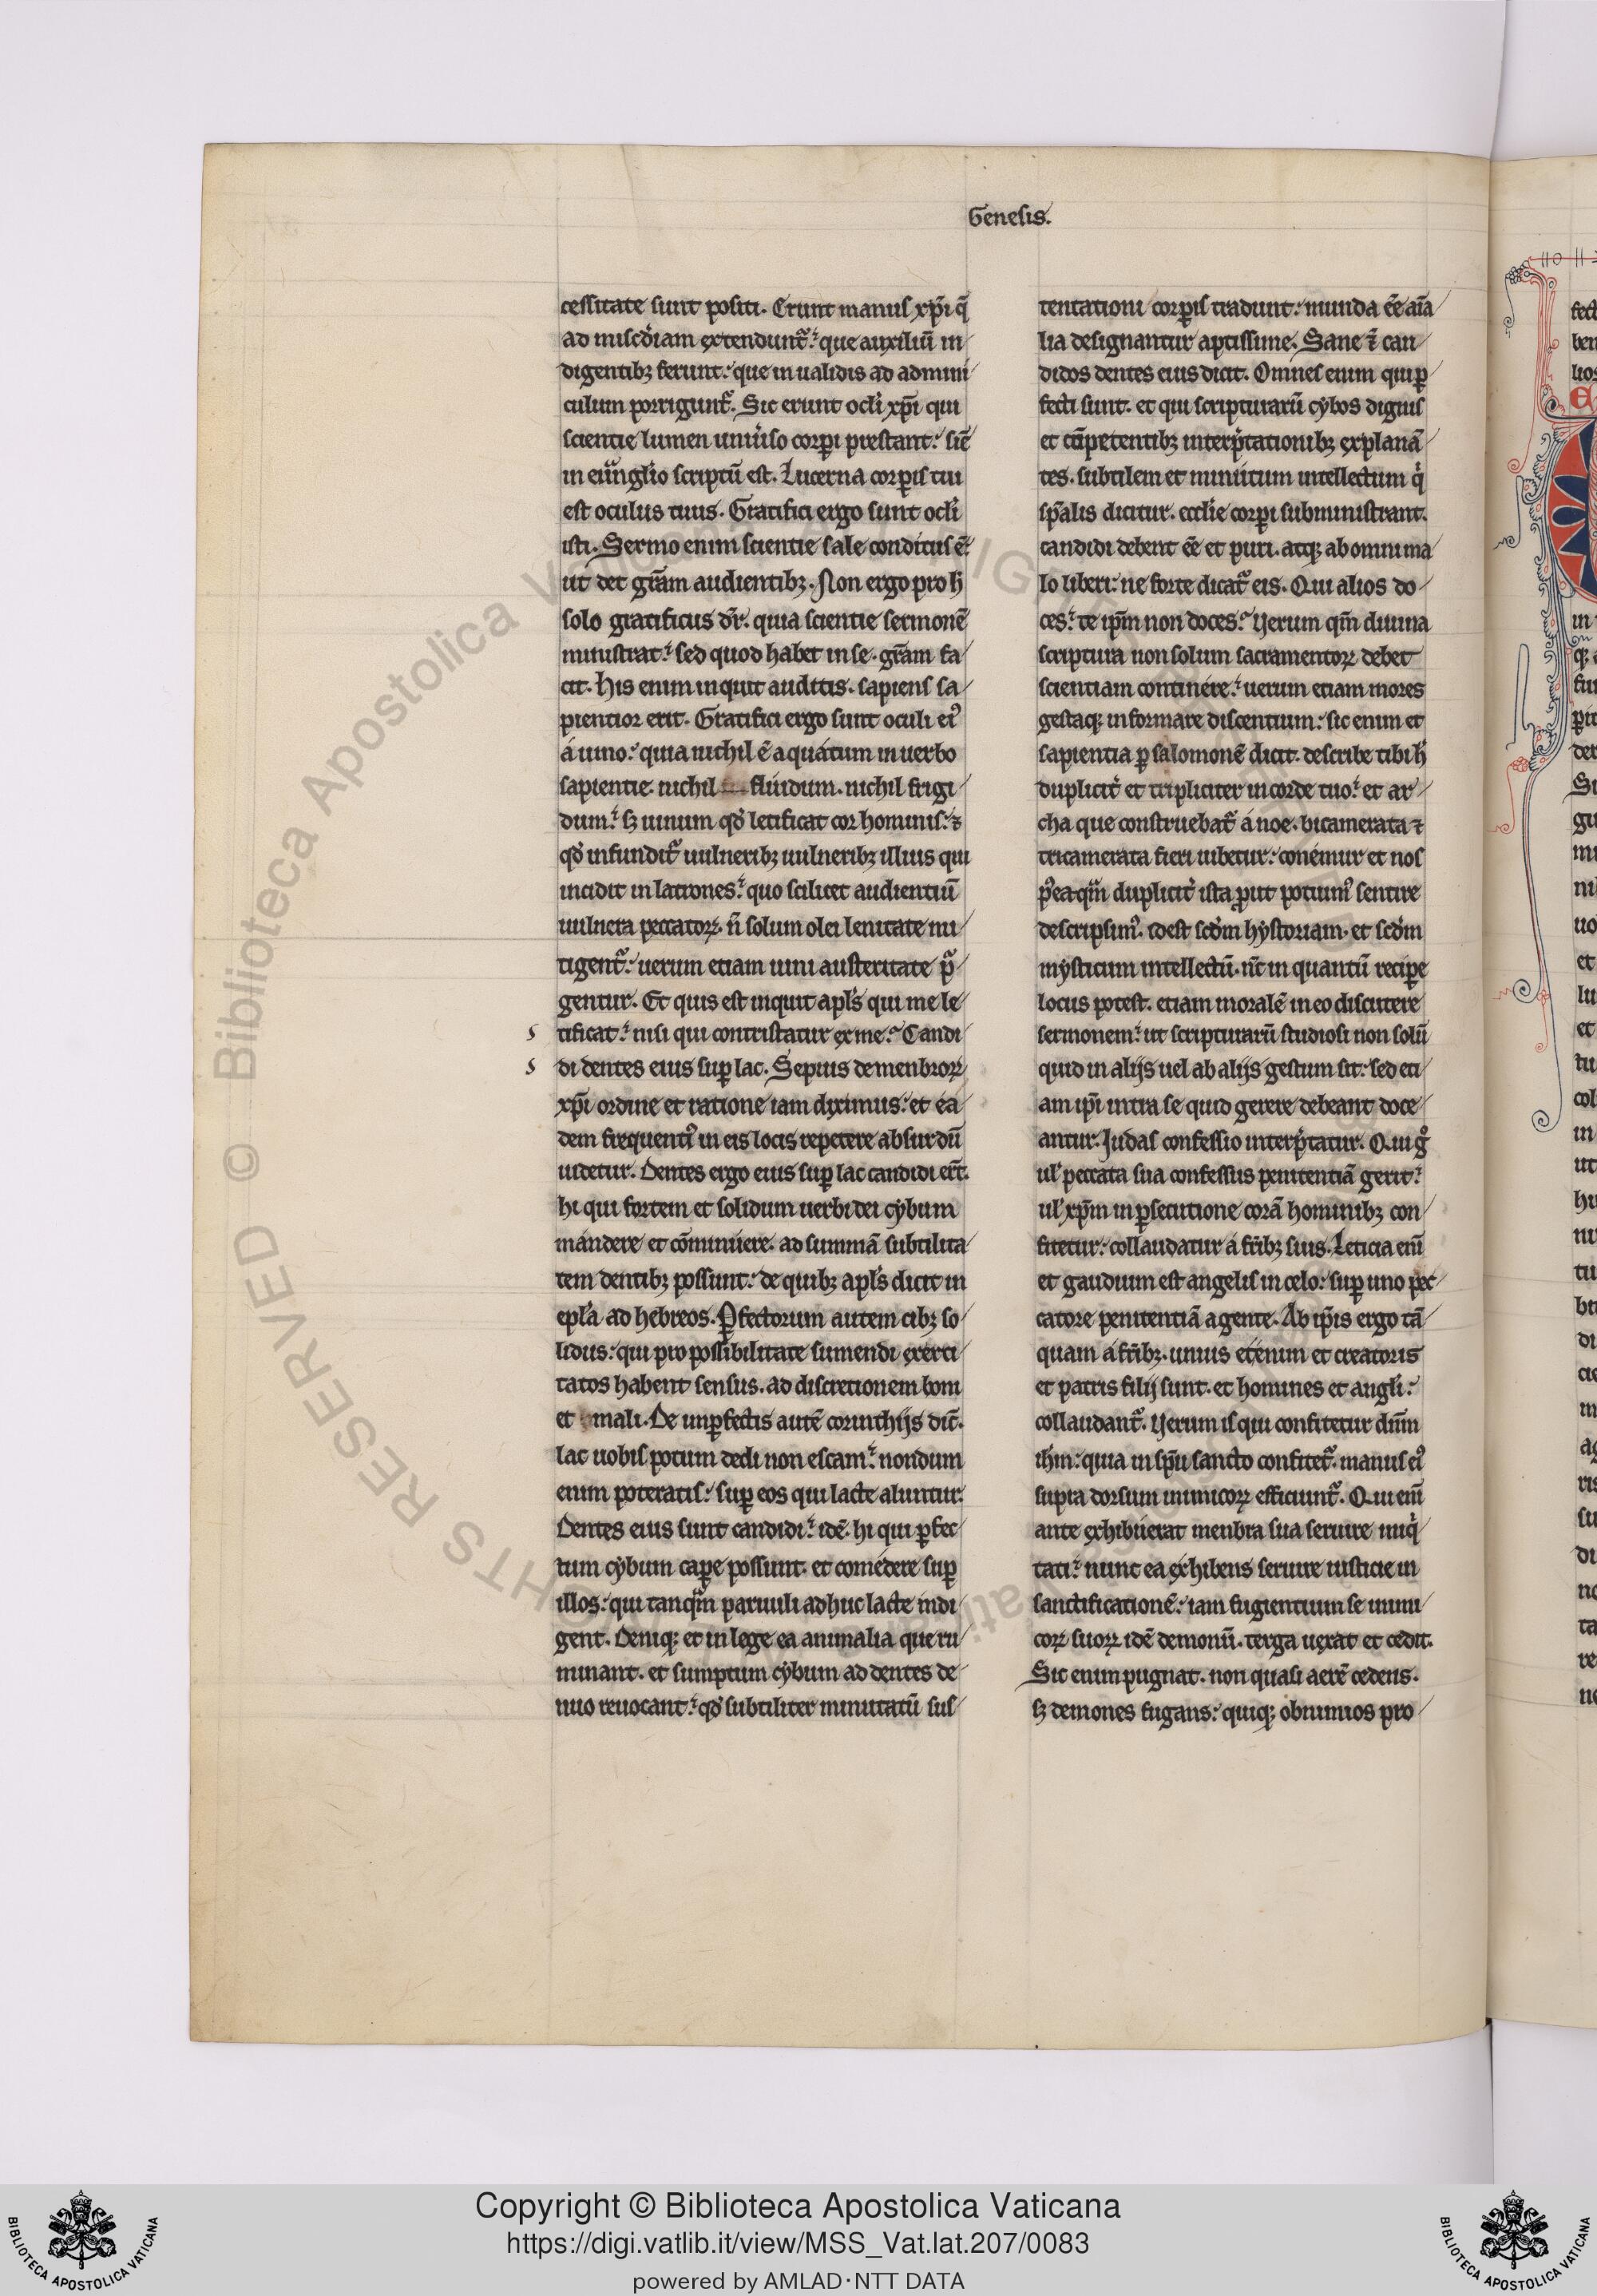 Genesis.
cessitate sunt positi. Erunt manus xp̄i q̄
ad mis̄cdiam extenduntᷣ. que auxiliū in
digentibꝫ ferunt. que inualidis ad admini
culum porriguntᷣ. Sic erunt oc̄li xp̄i qui
scientie lumen uniūso corꝑi prestant. sic̄
in eūnglio scriptū est. Lucerna corꝑis tui
est oculus tuus. Gratifici ergo sunt oc̄li
isti. Sermo enim scientie sale conditus ē.
ut det gr̄am audientibꝫ. Non ergo pro h̄
solo gratificus dr̄. quia scientie sermonē
ministrat. sed quod habet in se. gr̄am fa
cit. his enim inquit auditis. sapiens sa
pientior erit. Gratifici ergo sunt oculi eiꝰ
á uino. quia nichil ē aquátum in uerbo
sapientie. nichil fluidum. nichil frigi
dum. sꝫ uinum qd̄ letificat cor hominis. ⁊
qd̄ infunditᷣ uulneribꝫ uulneribꝫ illius qui
incidit in latrones. quo scilicet audientiū
uulnera peccatoꝝ. n̄ solum olei lenitate mi
tigentᷣ. uerum etiam uini austeritate pᷓ
gentur. Et quis est inquit apl̄s qui me le
s tificat. nisi qui contristatur ex me. Candi
s di dentes eius suꝑ lac. Sepius de menbroꝝ
xp̄i ordine et ratione iam diximus. et ea
dem frequentiꝰ in eis locis repetere absurdū
uidetur. Dentes ergo eius suꝑ lac candidi er̄t.
hi qui fortem et solidum uerbi dei cybum
mándere et cōminúere. ad summā subtilita
tem dentibꝫ possunt. de quibꝫ apl̄s dicit in
epl̄a ad hebreos. Ꝑfectorum autem cibꝫ so
lidus. qui pro possibilitate sumendi exerci
tatos habent sensus. ad discretionem boni
et mali. De inꝑfectis autē corinthijs dic̄.
lac uobis potum dedi non escam. nondum
enim poteratis. suꝑ eos qui lacte aluntur.
Dentes eius sunt candidi. idē. hi qui ꝑfec
tum cybum caꝑe possunt. et comédere suꝑ
illos. qui tanqᷓm paruuli adhuc lacte indi
gent. Deniqꝫ et in lege ea animalia que ru
minant. et sumptum cybum ad dentes de
nuo reuocant. qd̄ subtiliter minutatū sus
tentationi corꝑis tradunt. munda eē aīa
lia designantur aptissime. Sane ⁊ can
didos dentes eius dicit. Omnes enim qui ꝑ
fecti sunt. et qui scripturarū cybos dignis
et cūpetentibꝫ interp̄tationibꝫ explanā
tes. subtilem et minútum intellectum qͥ
sp̄alis dicitur. eccl̄ie corꝑi subministrant.
candidi debent eē et puri. atqꝫ ab omni ma
lo liberi. ne forte dicatᷣ eis. Qui alios do
ces. te ip̄m non doces. Verum qm̄ diuina
scriptura non solum sacramentoꝝ debet
scientiam continére. uerum etiam mores
gestaqꝫ informare discentium. sic enim et
sapientia ꝑ salomonē dicit. describe tibi h̄
duplicit̄ et tripliciter in corde tuo. et ar
cha que construebatᷣ á noe. bicamerata ⁊
tricamerata fieri iubetur. conémur et nos
pꝰea qᷓm duplicit̄ ista ꝓut potuimꝰ sentire
descripsimꝰ. idest scd̄m hystoriam. et scd̄m
mysticum intellectū. nc̄ in quantū reciꝑe
locus potest. etiam moralē in eo discutere
sermonem. ut scripturarū studiosi non solū
quid in alijs uel ab alijs gestum sit. sed eti
am ip̄i intra se quid gerere debeant doce
antur. Judas confessio interp̄tatur. Qui gͦ
ul̄ peccata sua confessus penitentiā gerit.
ul̄ xp̄m in ꝑsecutione corā hominibꝫ con
fitetur. collaudatur á fr̄ibꝫ suis. Leticia eni᷑
et gaudium est angelis in celo. suꝑ uno pec
catore penitentiā agente. Ab ip̄is ergo tā
quam á fr̄ibꝫ. unius eténim et creatoris
et patris filij sunt. et homines et angl̄i.
collaudantᷣ. Verum is qui confitetur dn̄m
ih̄m. quia in sp̄u sancto confitetᷣ. manus eiꝰ
supra dorsum inimicoꝝ efficiuntᷣ. Qui eni᷑
ante exhibúerat menbra sua seruire iniqͥ
tati. nunc ea exhibens seruire iusticie in
sanctificationē. iam fugientium se inimi
coꝝ suoꝝ idē demonū. terga uexat et cedit.
Sic enim pugnat. non quasi aerē cedens.
sꝫ demones fugans. quiqꝫ obnimios pro
Copyright © Biblioteca Apostolica Vaticana
https://digi.vatlib.it/view/MSS_Vat.lat.207/0083
powered by AMLAD·NTT DATA